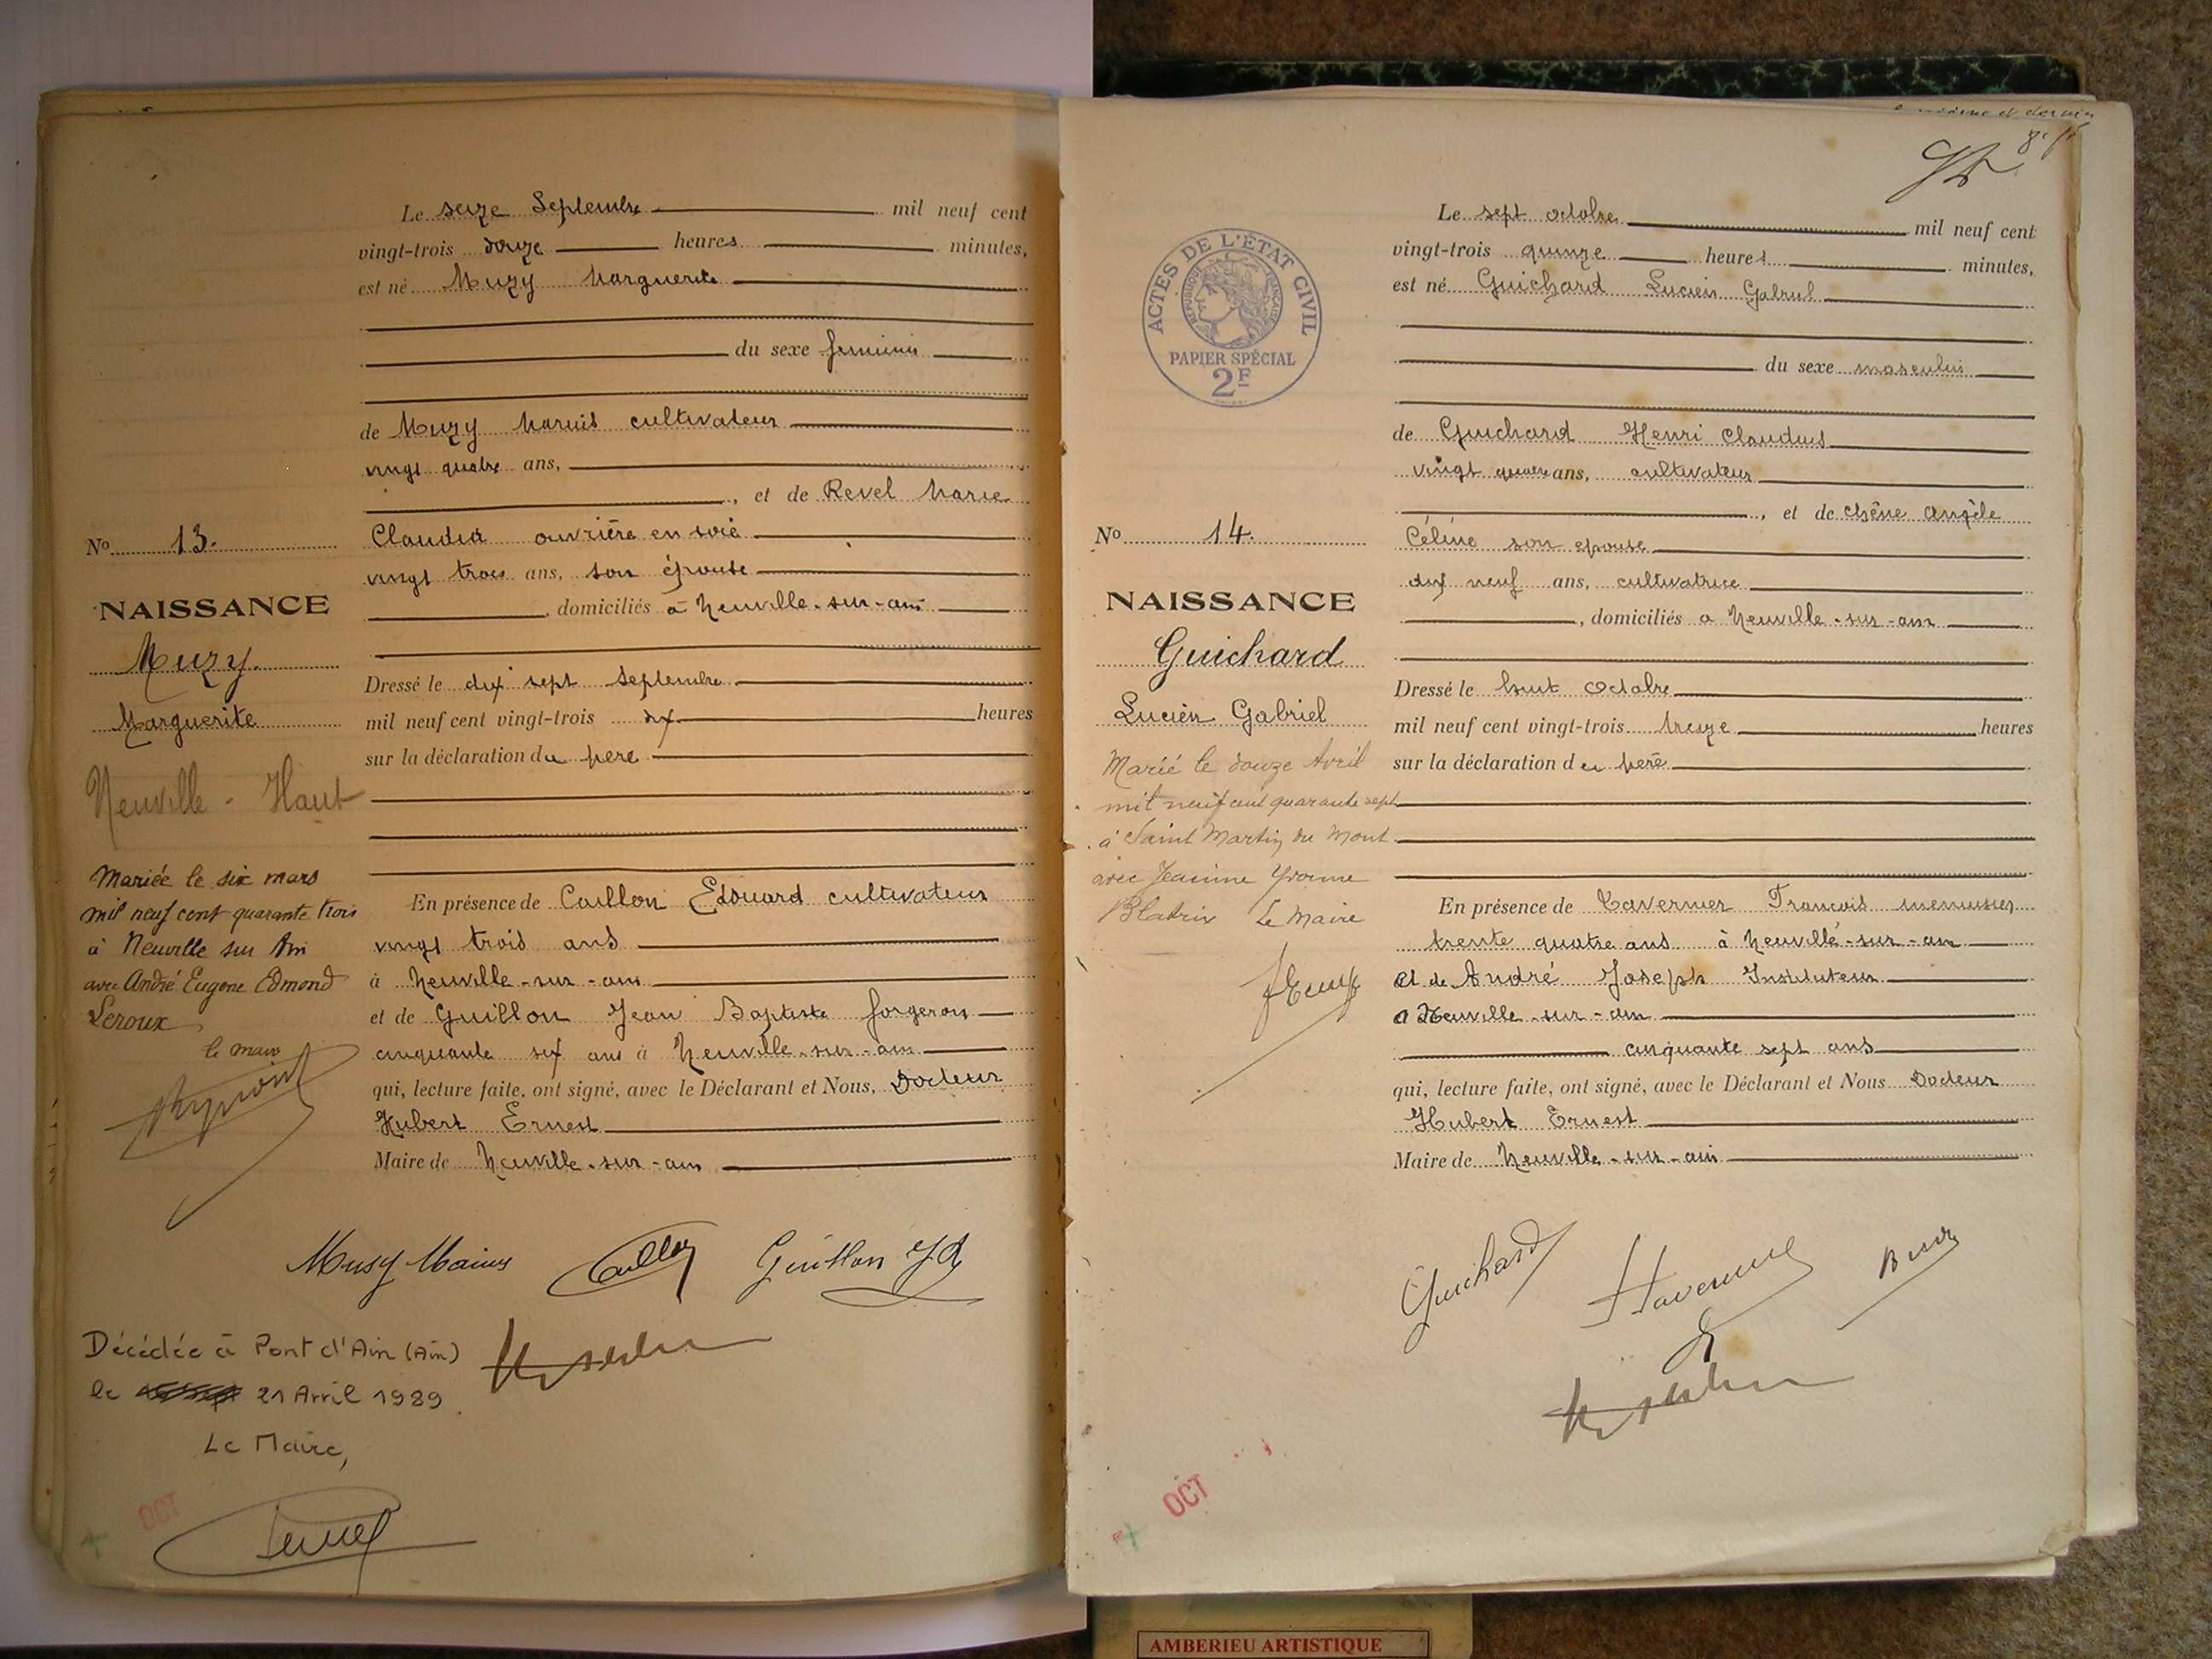 Le seize Septembre mil neuf cent
vingt-trois douze heures minutes,
est né Muzy Marguerite
du sexe féminin
de Muzy Marius cultivateur
vingt quatre ans,
, et de Revel Marie
Claudia ouvrière en soie
vingt trois ans, son épouse
, domiciliés à Neuville-sur-ain
Dressé le dix sept Septembre
mil neuf cent vingt-trois dix heures
sur la déclaration du père
En présence de Caillon Edouard cultivateur
vingt trois ans
à Neuville-sur-ain
et de Guillon Jean Baptiste forgeron
cinquante six ans à Neuville-sur-ain
qui, lecture faite, ont signé, avec le Déclarant et Nous, Docteur
Hubert Ernest
Maire de Neuville-sur-ain
No 13.
NAISSANCE
Muzy.
Marguerite
Neuville - Haut
Mariée le six mars
mil neuf cent quarante trois
à Neuville sur Ain
avec André Eugene Edmond
Leroux
le maire
Musy Marius Caillon Guillon J B
Décédée à Pont d'Ain (Ain)
le 21 Avril 1989
Le Maire,
OCT
et dernier
Le sept octobre mil neuf cent
vingt-trois quinze heures minutes,
est né Guichard Lucien Gabriel
du sexe masculin
de Guichard Henri Claudius
vingt quatre ans, cultivateur
, et de Chêne Angèle
Céline son epouse
dix neuf ans, cultivatrice
, domiciliés a Neuville-sur-ain
Dressé le huit Octobre
mil neuf cent vingt-trois treize heures
sur la déclaration du père
En présence de Tavernier François menuisier
trente quatre ans à Neuville-sur-ain
et de André Joseph Instituteur
a Neuville-sur-ain
cinquante sept ans
qui, lecture faite, ont signé, avec le Déclarant et Nous Docteur
Hubert Ernest
Maire de Neuville-sur-ain
ACTES DE L'ÉTAT CIVIL
RÉPUBLIQUE FRANÇAISE
PAPIER SPÉCIAL
2F
No 14.
NAISSANCE
Guichard
Lucien Gabriel
Marié le douze Avril
mil neuf cent quarante sept
à Saint Martin du Mont
avec Jeanine Yvonne
Blatrix Le Maire
Guichard Tavernier
OCT
AMBERIEU ARTISTIQUE